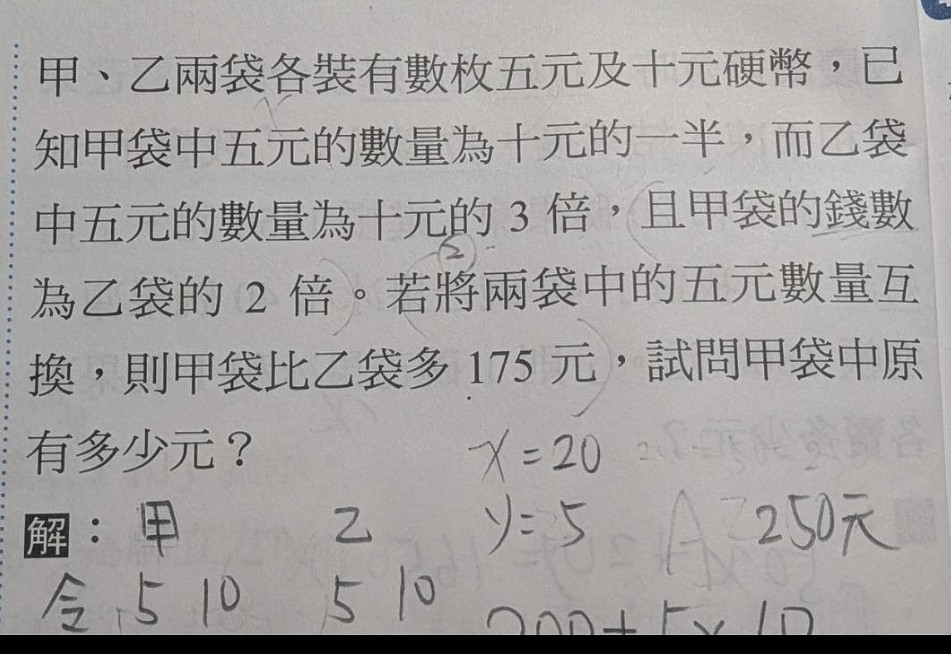 甲、乙兩袋各裝有數枚五元及十元硬幣，已
知甲袋中五元的數量為十元的一半，而乙袋
中五元的數量為十元的 3 倍，且甲袋的錢數
為乙袋的 2 倍。若將兩袋中的五元數量互
換，則甲袋比乙袋多 175 元，試問甲袋中原
有多少元？
x=20
解：甲 乙 y=5 250元
令 5 10 5 10 200+5×10